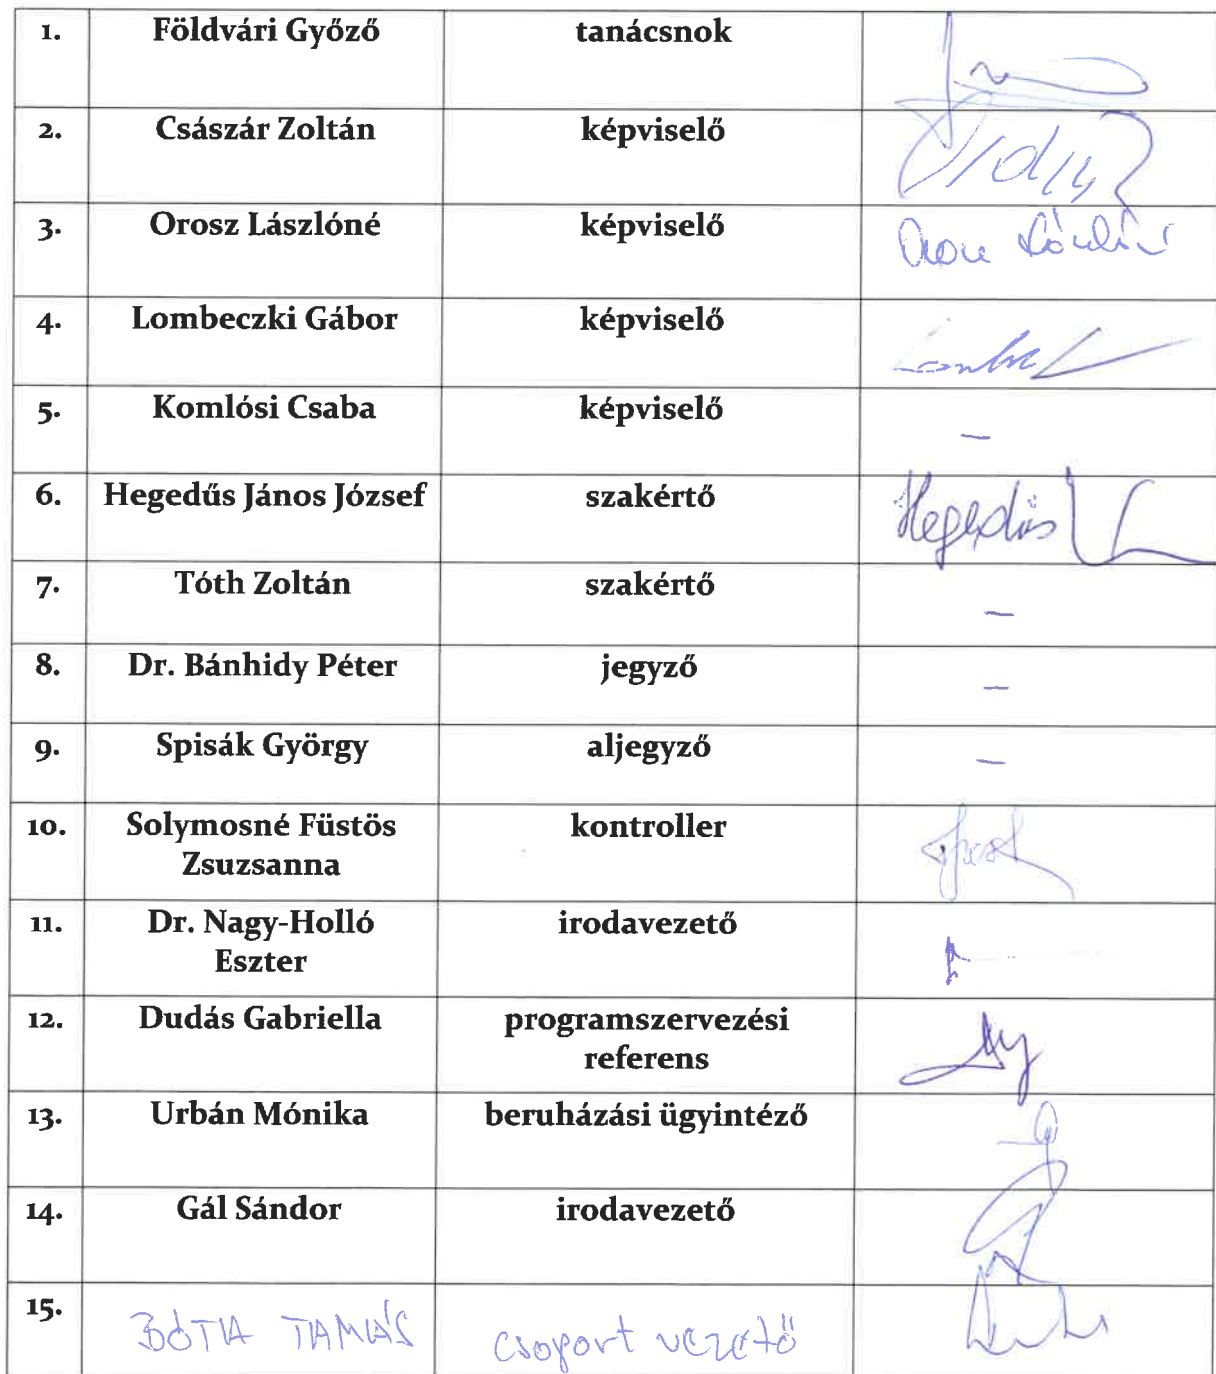 1. Földvári Győző tanácsnok
2. Császár Zoltán képviselő
3. Orosz Lászlóné képviselő
4. Lombeczki Gábor képviselő
5. Komlósi Csaba képviselő –
6. Hegedűs János József szakértő Hegedűs
7. Tóth Zoltán szakértő –
8. Dr. Bánhidy Péter jegyző –
9. Spisák György aljegyző –
10. Solymosné Füstös kontroller
Zsuzsanna
11. Dr. Nagy-Holló irodavezető
Eszter
12. Dudás Gabriella programszervezési
referens
13. Urbán Mónika beruházási ügyintéző
14. Gál Sándor irodavezető
15. BÓTA TAMÁS csoport vezető